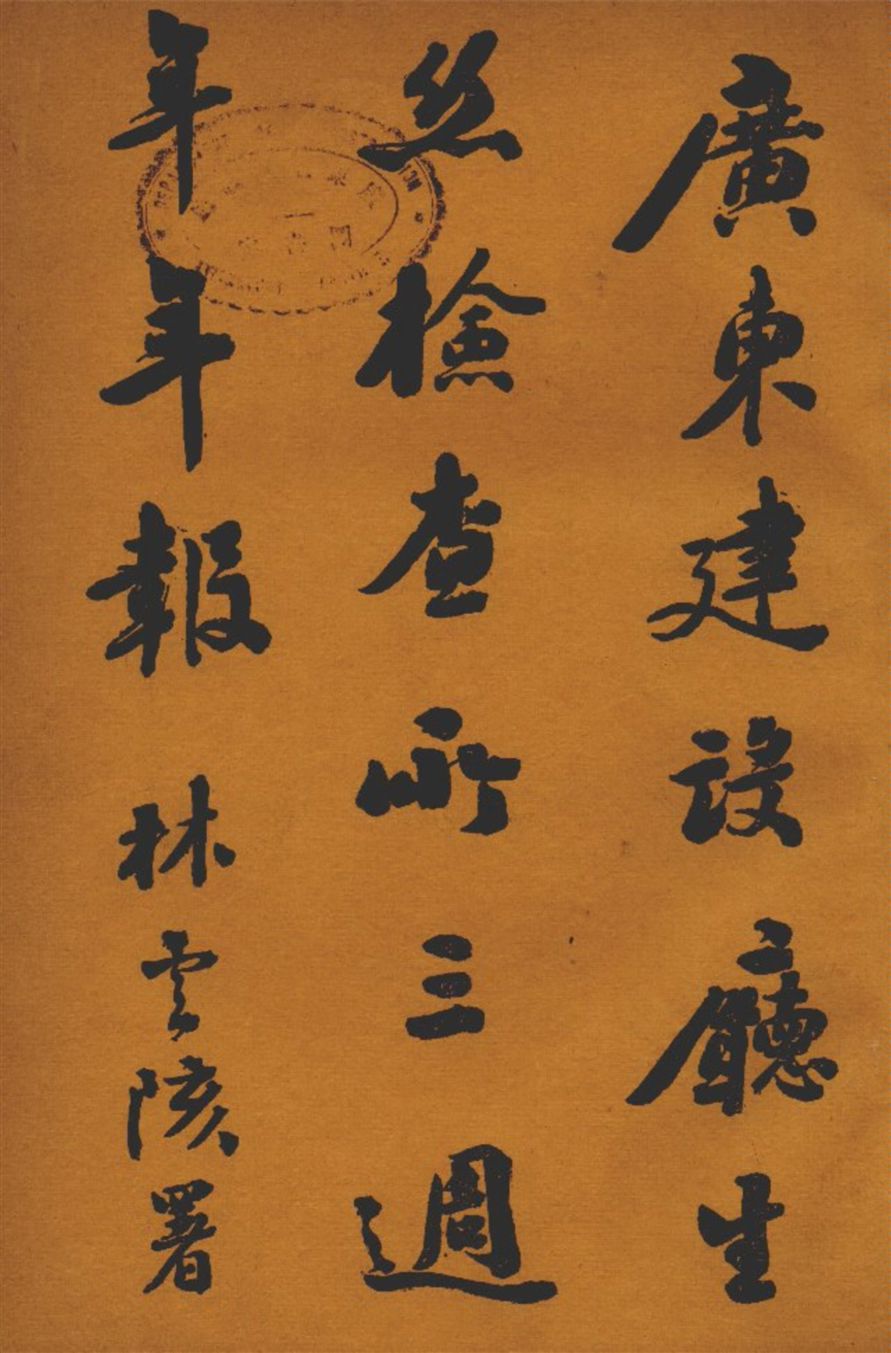 廣東建設廳生
丝檢查所三週
年年報
林雲陔署